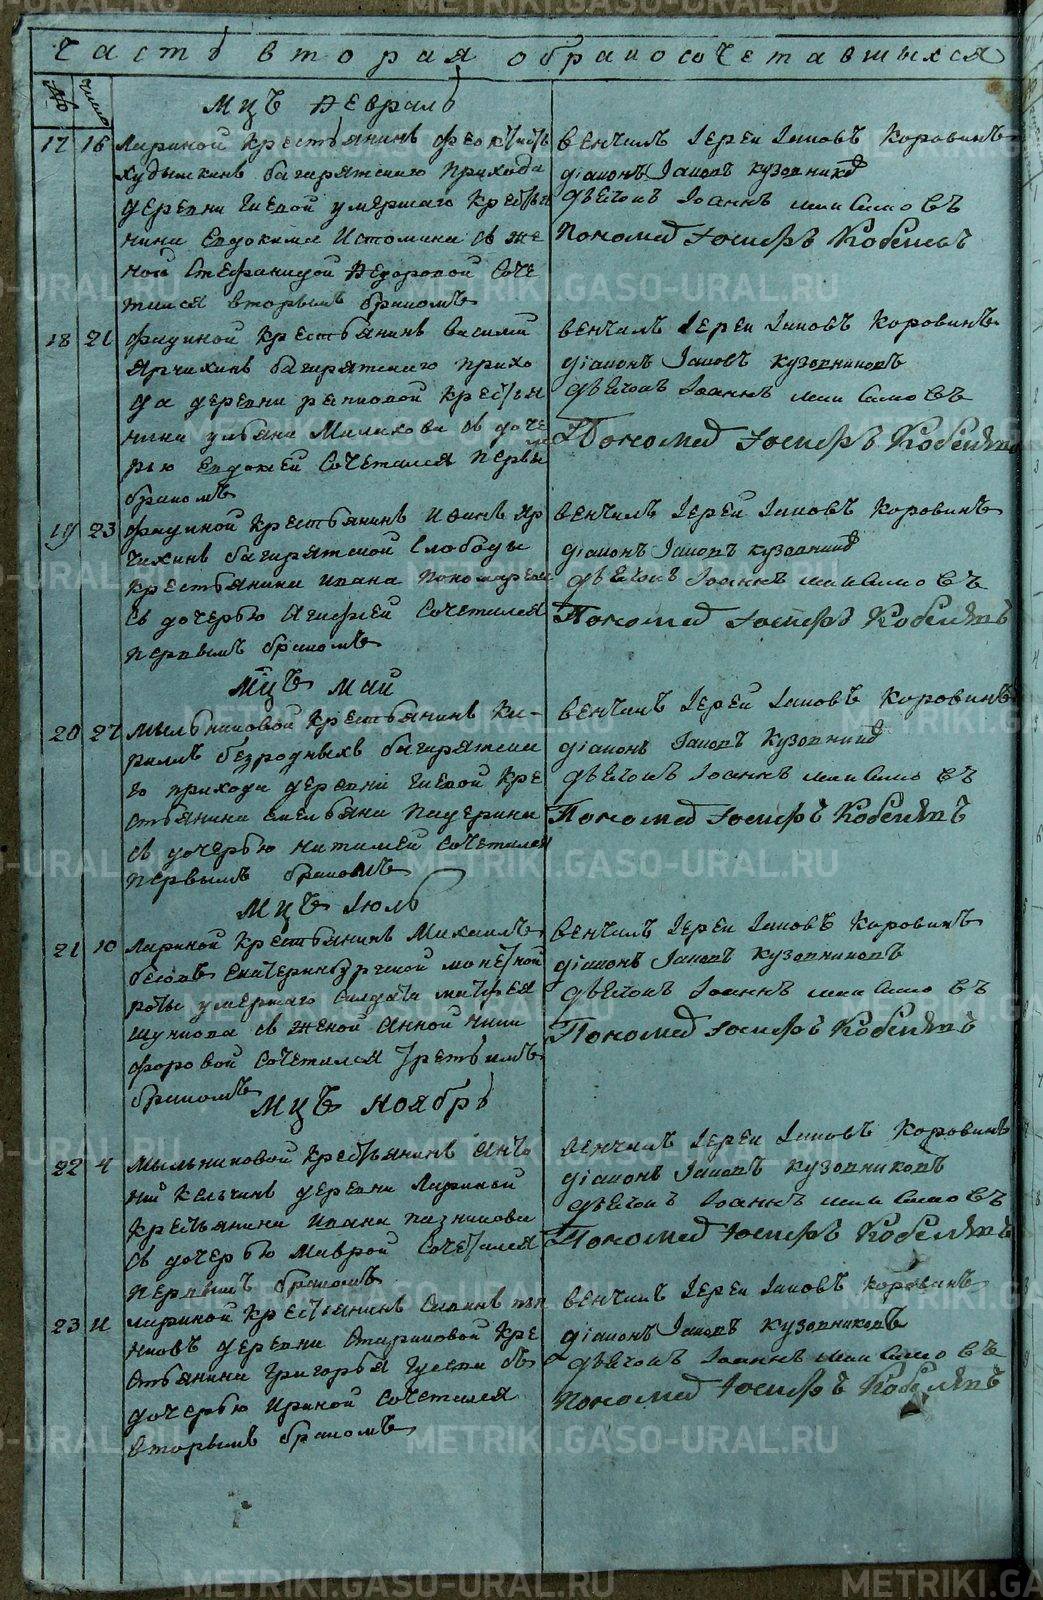 Часть вторая о бракосочетавшыхся
№ число
Мцъ Февраль
17 16 Лариной крестьянинъ Феоктистъ
Худышкинъ багарятскаго прихода
деревни гаевой умершаго крестья
нина Евдокима Истомина съ же
ной Стефанидой Федоровой соче
тался вторымъ бракомъ
венчалъ Іерей Іаковъ Коровинъ
діаконъ Іаковъ Кузовников
дьячокъ Іоаннъ
Пономар Іосифъ Кобелевъ
18 21 крестьянинъ Василей
Ярчихинъ багарятскаго прихо
да деревни крестья
нина ульяна Малахова съ доче
рью Евдокией сочетался первы
бракомъ
венчалъ Іерей Іаковъ Коровинъ
діаконъ Іаковъ Кузовниковъ
дьячокъ Іоаннъ
Пономар Іосифъ
19 23 крестьянинъ Яр
чихинъ багарятской слободы
крестьянина ивана пономарева
съ дочерью Агафьей сочетался
первымъ бракомъ
венчалъ Іерей Іаковъ Коровинъ
діаконъ Іаковъ Кузовников
дьячокъ Іоаннъ
Пономар Іосифъ
Мцъ Май
20 27 мыльниковой крестьянинъ Ки-
риллъ безродныхъ багарятска
го прихода деревни гаевой кре
стьянина емельяна
съ дочерью наталией сочетался
первымъ бракомъ
венчалъ Іерей Іаковъ Коровинъ
діаконъ Іаковъ Кузовников
дьячокъ Іоаннъ
Пономар Іосифъ
Мцъ Іюль
21 10 Лариной крестьянинъ Михайлъ
Екатеринбургской монетной
роты умершаго салдата матфея
съ женой Анной ники
форовой сочетался третьимъ
бракомъ
венчалъ Іерей Іаковъ Коровинъ
діаконъ Іаковъ Кузовниковъ
дьячокъ Іоаннъ
Пономар Іосифъ
Мцъ ноябрь
22 4 Мыльниковой крестьянинъ анто
ний деревни Лариной
крестьянина ивана
съ дочерью Маврой сочетался
первымъ бракомъ
венчалъ Іерей Іаковъ Коровинъ
діаконъ Іаковъ Кузовниковъ
дьячокъ Іоаннъ
Пономар Іосифъ
23 11 лариной крестьянинъ
деревни кре
стьянина григорья гусева съ
дочерью Ириной сочетался
вторымъ бракомъ
венчалъ Іерей Іаковъ Коровинъ
діаконъ Іаковъ Кузовниковъ
дьячокъ Іоаннъ
Пономар Іосифъ
METRIKI.GASO-URAL.RU